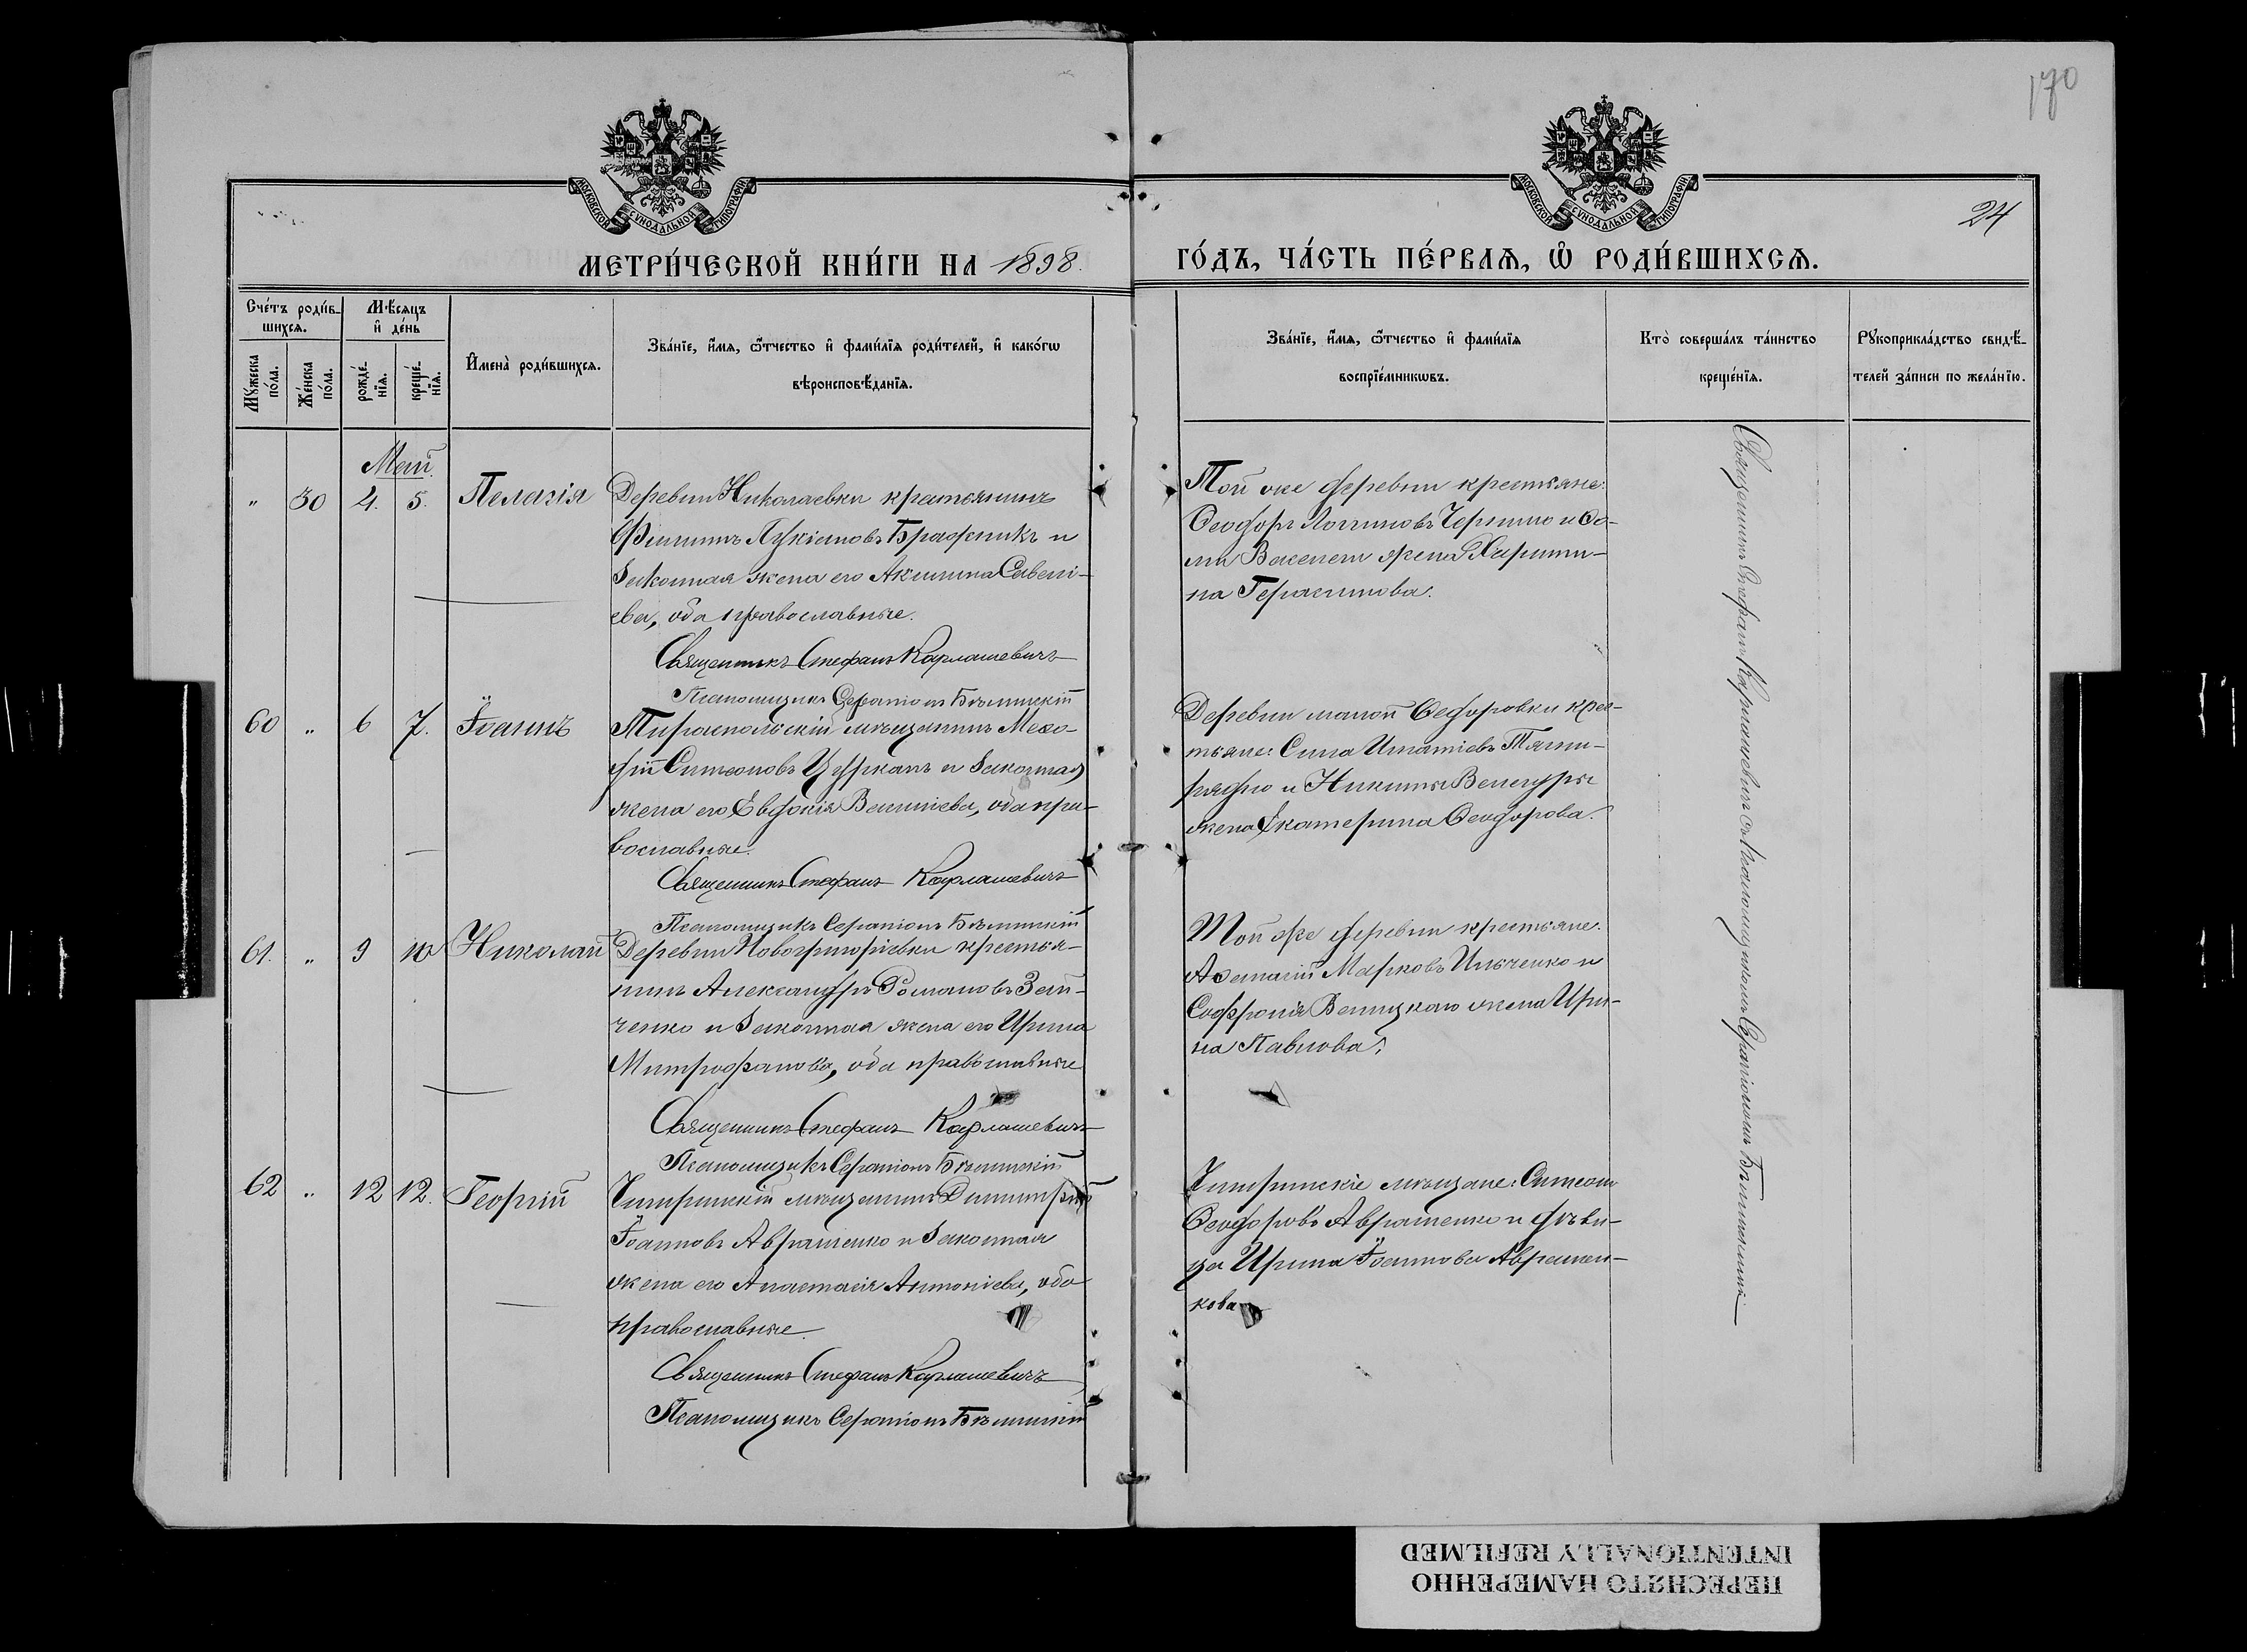 170
МОСКОВСКОЙ СѴНОДАЛЬНОЙ ТИПОГРАФІИ
МОСКОВСКОЙ СѴНОДАЛЬНОЙ ТИПОГРАФІИ
24
МЕТРИ́ЧЕСКОЙ КНИ́ГИ НА 1898.
ГО́ДЪ, ЧА́СТЬ ПЕ́РВАѦ, Ѡ҆ РОДИ́ВШИХСѦ.
Сче́тъ роди́в-
шихсѧ.
Мꙋ́жеска по́ла.
Же́нска по́ла.
Мѣ́сѧцъ
и҆ де́нь
рожде́-
нїѧ.
креще́-
нїѧ.
И҆мена̀ роди́вшихсѧ.
Зва́нїе, и҆́мѧ, ѻ҆́тчество и҆ фами́лїѧ роди́телей, и҆ како́гѡ
вѣроисповѣ́данїѧ.
Зва́нїе, и҆́мѧ, ѻ҆́тчество и҆ фами́лїѧ
воспрїе́мникѡвъ.
Кто̀ соверша́лъ та́инство
креще́нїѧ.
Рꙋкоприкла́дство свидѣ́-
телей за́писи по жела́нїю.
Май.
" 30 4. 5. Пелагія
Деревни Николаевки крестьянинъ
Филиппъ Лукіановъ Бражникъ и
законная жена его Акилина Савелі-
ева, оба православные.
Священникъ Стефанъ Карлашевичъ
Псаломщикъ Серапіонъ Бѣлинскій
Той же деревни крестьяне:
Ѳеодоръ Логгиновъ и Ѳо-
мы жена Харити-
на Герасимова.
60 " 6 7. Іоаннъ
Тираспольскій мѣщанинъ Меѳо-
дій Симеоновъ Цурканъ и законная
жена его Евдокія оба пра-
вославные.
Священникъ Стефанъ Карлашевичъ
Псаломщикъ Серапіонъ Бѣлинскій
Деревни малой Ѳедоровки крес-
тьяне: Сила Игнатіевъ Тягни-
рядно и Никиты
жена Екатерина Ѳеодорова.
61. " 9 10 Николай
Деревни Новогригоріевки крестья-
нинъ Александръ Романовъ Зай-
ченко и законная жена его Ирина
Митрофанова, оба православные
Священникъ Стефанъ Карлашевичъ
Псаломщикъ Серапіонъ Бѣлинскій
Той же деревни крестьяне:
Аѳанасій Марковъ Ильченко и
Софронія жена Ири-
на Павлова.
62 " 12 12. Георгій
Чигиринскій мѣщанинъ Димитрій
Іоанновъ Авраменко и законная
жена его Анастасія Антоніева, оба
православные.
Священникъ Стефанъ Карлашевичъ
Псаломщикъ Серапіонъ Бѣлинскій
Чигиринскіе мѣщане: Симеонъ
Ѳеодоровъ Авраменко и дѣви-
ца Ирина Іоаннова Авремен-
кова
Священникъ Стефанъ Карлашевичъ съ псаломщикомъ Серапіономъ Бѣлинскимъ
ПЕРЕСНЯТО НАМЕРЕННО
INTENTIONALLY REFILMED